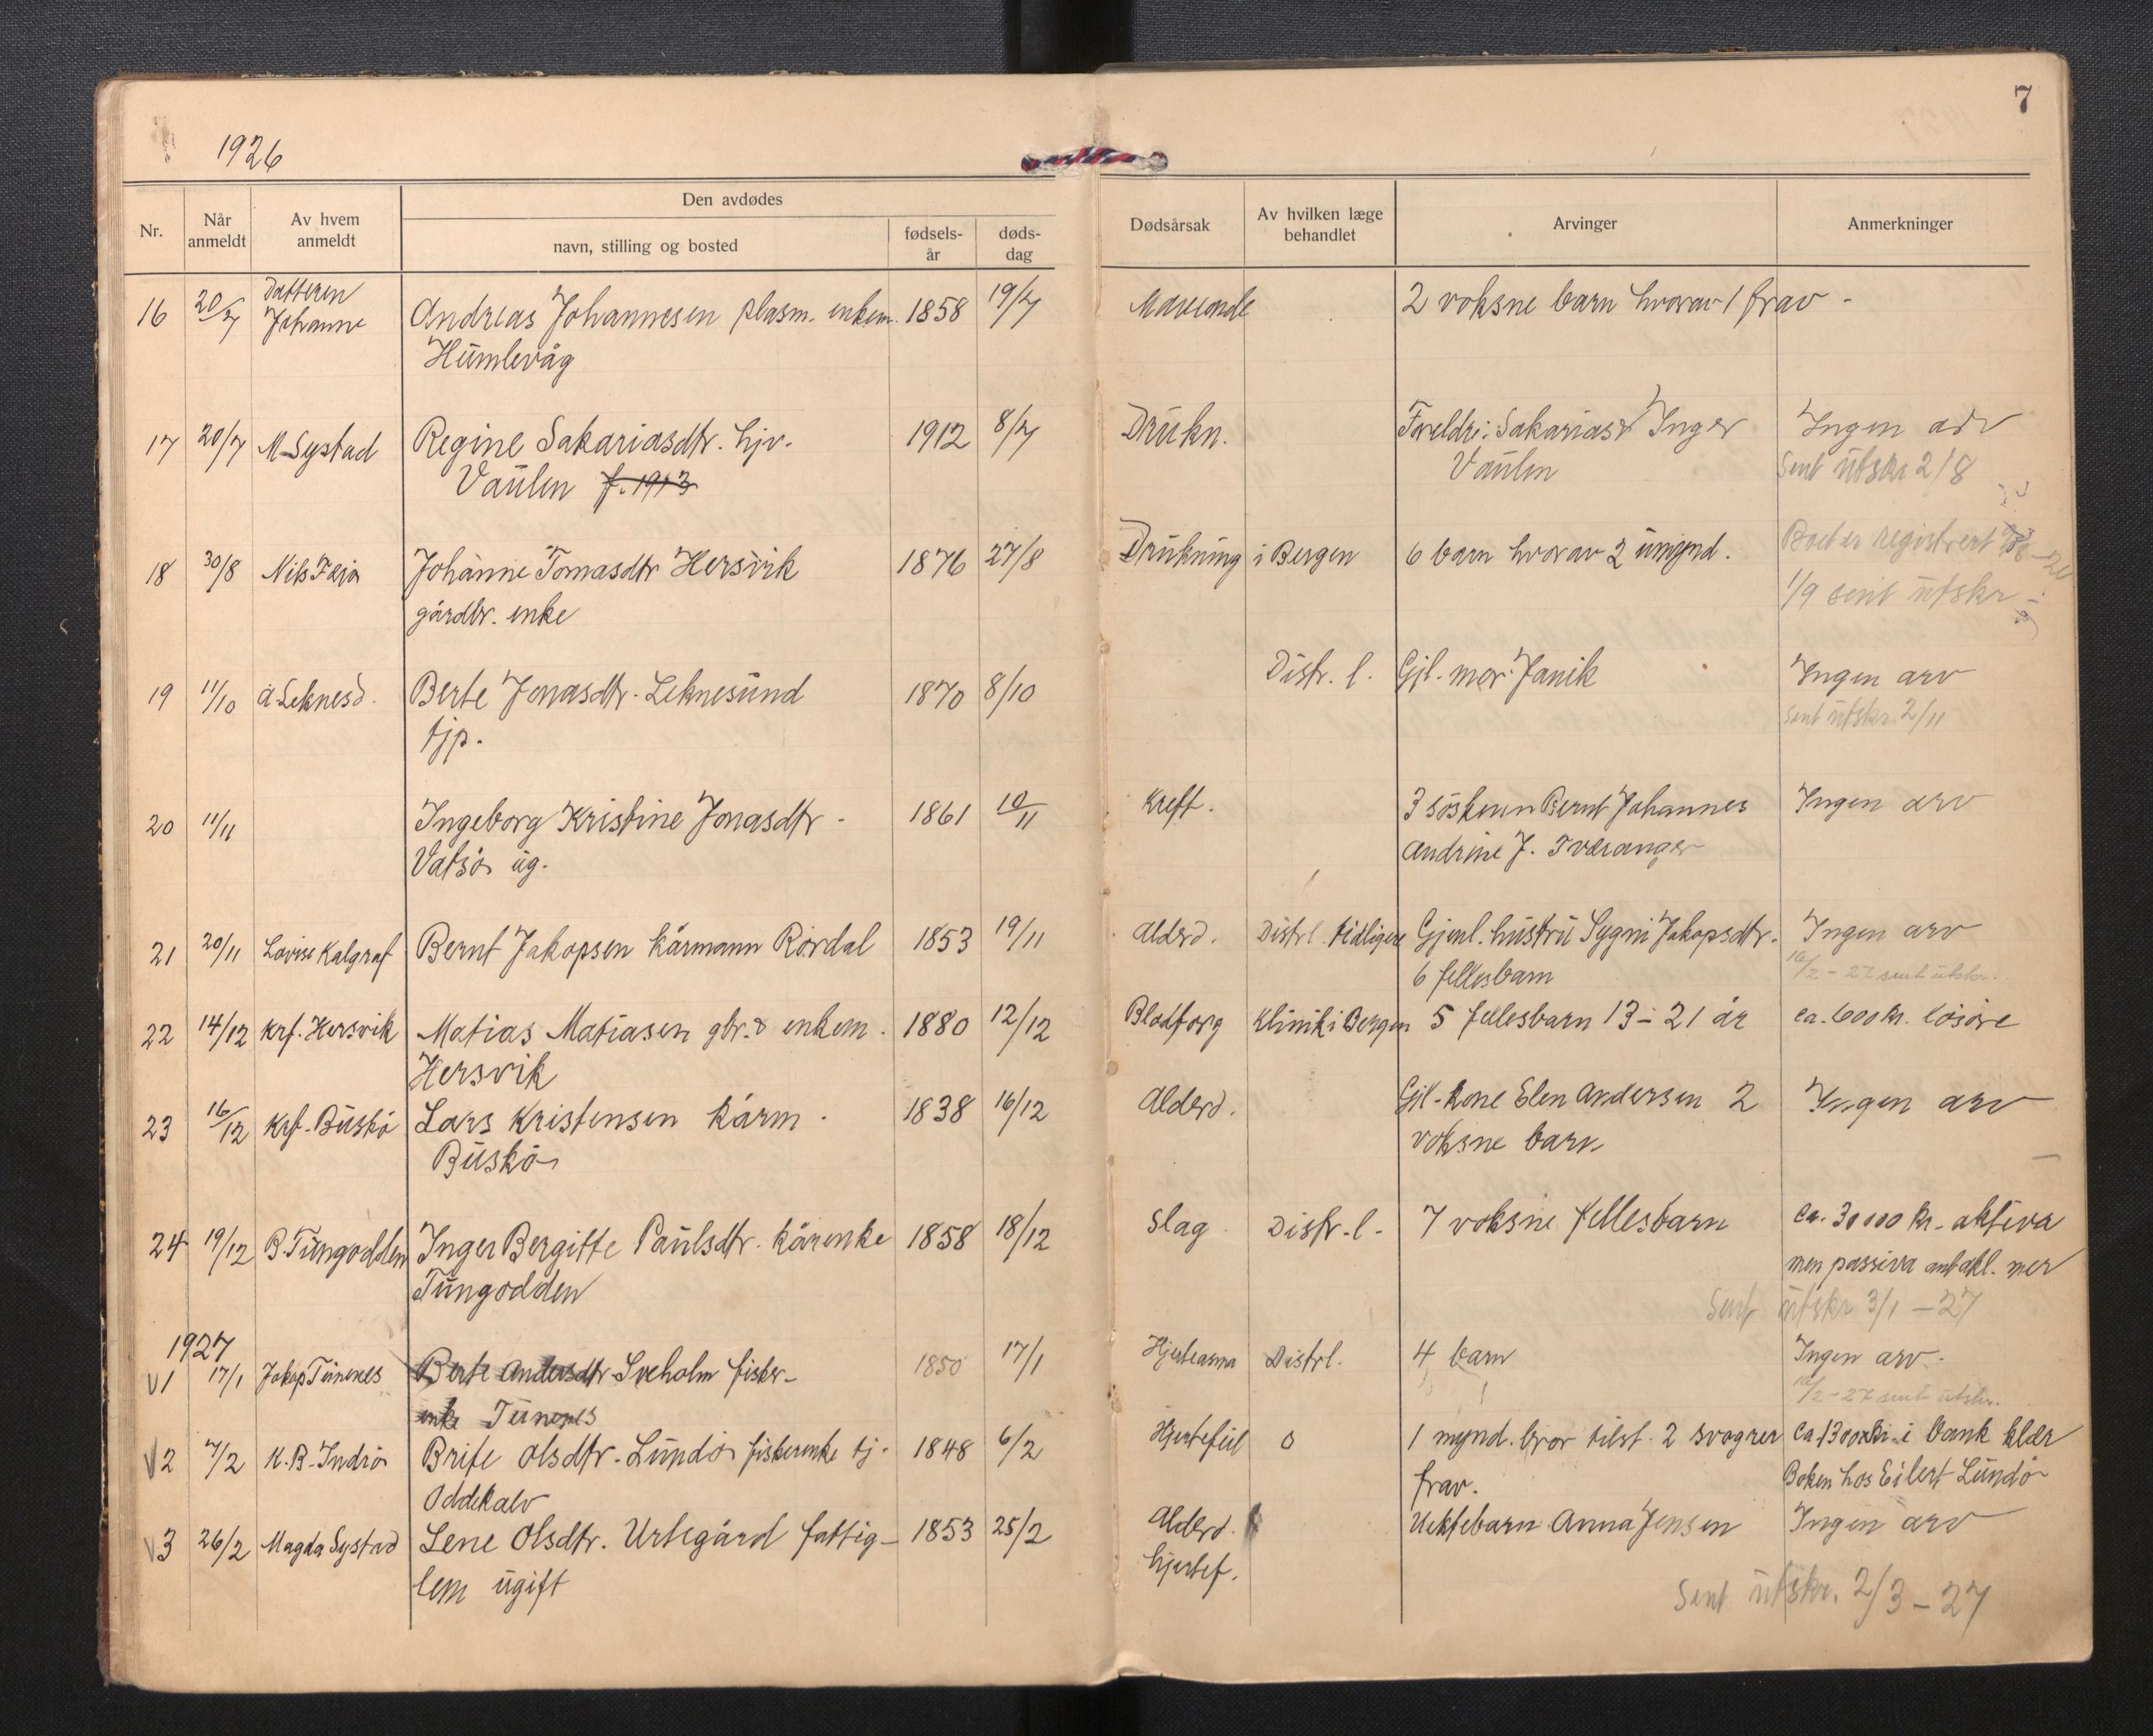 7
1926
Nr.
Når anmeldt
Av hvem anmeldt
Den avdødes
navn, stilling og bosted
fødsels-år
døds-dag
Dødsårsak
Av hvilken læge behandlet
Arvinger
Anmerkninger
16 20/7 Datteren Johanne Andreas Johannesen plasm. enkem. 1858 19/7 Maveonde 2 voksne barn hvorav 1 frav -
Humlevåg
17 20/7 M Systad Regine Sakariasdtr. hjv. 1912 8/7 Drukn. Foreldre: Sakarias & Inger Ingen arv
Vaulen f. 1913 Vaulen Sent utskr 2/8
18 30/8 Nils Færø Johanne Tomasdtr Hersvik 1876 27/8 Drukning i Bergen 6 barn hvorav 2 umynd. Boet er registrert
gårdbr. enke 1/9 sent utskr
19 11/10 A Leknesd. Berte Jonasdtr. Leknesund 1870 8/10 Distr. l. Gjl. mor Janik Ingen arv
tjp. sent utskr. 2/11
20 11/11 Ingeborg Kristine Jonasdtr - 1861 10/11 Kreft. 3 søsken Bernt Johannes Ingen arv
Vatsø ug. Andrine J. Tveranger
21 20/11 Lovise Kalgraf Bernt Jakopsen kårmann Rørdal 1853 19/11 Alderd. Distrl. tidligere Gjenl. hustru Sygni Jakopsdtr. Ingen arv
6 fellesbarn 16/2 - 27 sent utskr.
22 14/12 Krf. Hersvik Matias Matiasen gbr. & enkem. 1880 12/12 Blodforg Klinik i Bergen 5 fellesbarn 13-21 år ca. 600 kr. løsøre
Hersvik
23 16/12 Krf. Buskø Lars Kristensen kårm. 1838 16/12 Alderd. Gjl. kone Elen Andersen 2 Ingen arv
Buskø voksne barn
24 19/12 B. Tungodden Inger Bergitte Paulsdtr. kårenke 1858 18/12 Slag Distr. l. 7 voksne fellesbarn ca. 30000 kr. aktiva
Tungodden men passiva antakl. mer
Sent utskr 3/1 - 27
1927
V1 17/1 Jakop Tunenes Berte Andersdtr Sveholm fisker- 1850 17/1 Hjerteasma Distrl. 4 barn Ingen arv.
enke Tunenes 16/2 - 27 sent utskr.
V2 7/2 K. B. Indrø Brite Olsdtr. Lundø fiskerenke tj. 1848 6/2 Hjertefeil 0 1 mynd. bror tilst. 2 svogrer Ca 1300 kr. i bank klær
Oddekalv frav. Boken hos Eilert Lundø
V3 26/2 Magda Systad Lene Olsdtr. Urtegård fattig- 1853 25/2 Alderd. Uektebarn Anna Jensen Ingen arv
lem ugift hjertef.
Sent utskr. 2/3 - 27